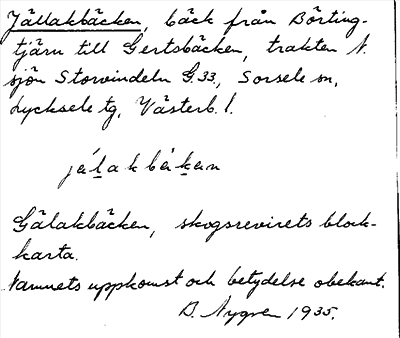 Jällakbäcken, bäck från Börting-
tjärn till Gertsbäcken, trakten N.
sjön Storvindeln G.33., Sorsele sn,
Lycksele tg, Västerb. l.
jálakbäkən
Gälakbäcken, skogsrevirets block-
karta.
Namnets uppkomst och betydelse obekant.
D. Nygren 1935.